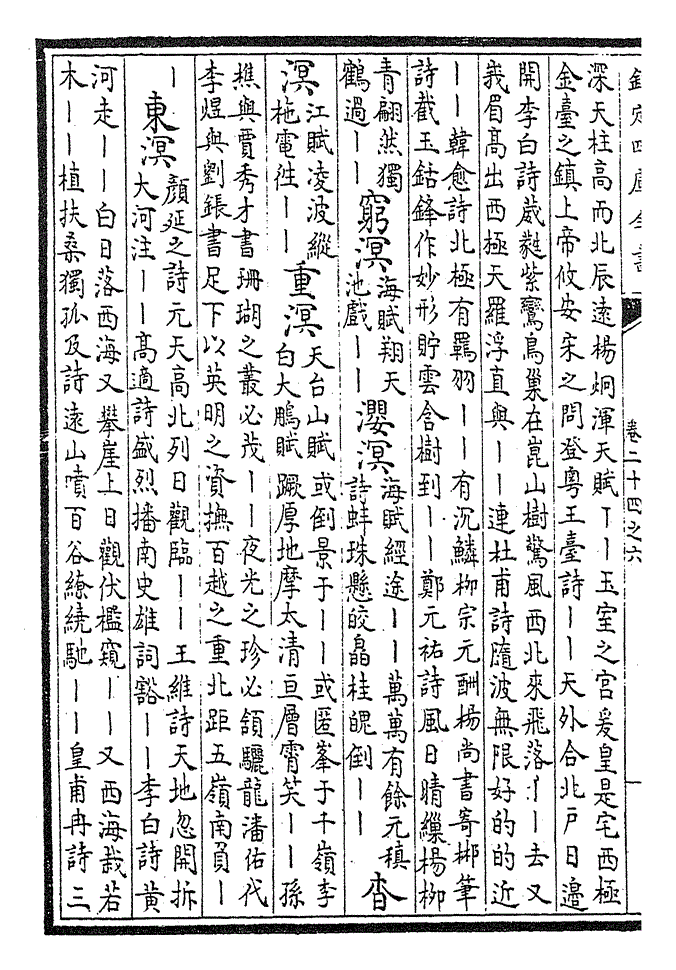 欽定四庫全書
卷二十四之六
深天柱高而北辰遠楊炯渾天賦丨丨玉室之宮爰皇是宅西極
金臺之鎮上帝攸安宋之問登粵王臺詩丨丨天外合北戶日邊
開李白詩葳蕤紫鸞鳥巢在崑山樹驚風西北來飛落丨丨去又
峩眉髙出西極天羅浮直與丨丨連杜甫詩隨波無限好的的近
丨丨韓愈詩北極有羈羽丨丨有沉鱗栁宗元酬楊尚書寄郴筆
詩截玉銛鋒作妙形貯雲含樹到丨丨鄭元祐詩風日晴纙楊栁
青翩然獨
鶴過丨丨
窮溟
海賦翔天
池戲丨丨
瀴溟
海賦經途丨丨萬萬有餘元稹
詩蚌珠懸皎皛桂魄倒丨丨
杳
溟
江賦凌波縱
柂電徃丨丨
重溟
天台山賦或倒景于丨丨或匿峯于千嶺李
白大鵬賦蹶厚地摩太清亘層霄突丨丨孫
樵與賈秀才書珊瑚之叢必茂丨丨夜光之珍必頷驪龍潘佑代
李煜與劉鋹書足下以英明之資撫百越之重北距五嶺南負丨
丨
東溟
顔延之詩元天高北列日觀臨丨丨王維詩天地忽開拆
大河注丨丨髙適詩盛烈播南史雄詞豁丨丨李白詩黄
河走丨丨白日落西海又攀崖上日觀伏檻窺丨丨又西海栽若
木丨丨植扶桑獨孤及詩遠山噴百谷繚繞馳丨丨皇甫冉詩三